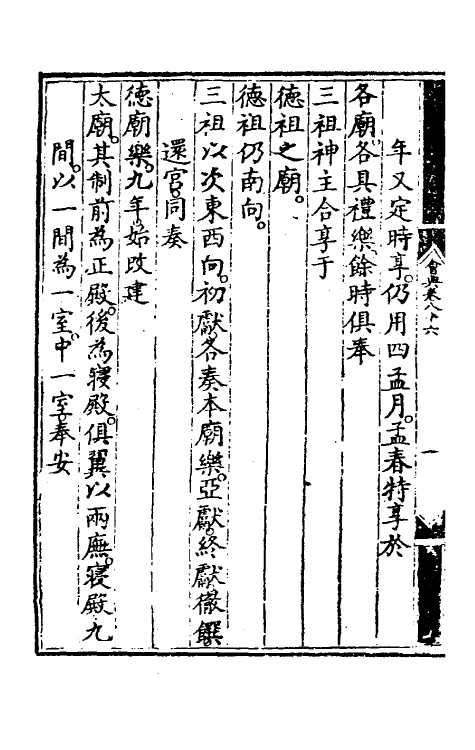 會典卷八十六
一
年又定時享。仍用四孟月。孟春特享於
各廟。各具禮樂。餘時俱奉
三祖神主合享于
德祖之廟。
德祖仍南向。
三祖以次東西向。初獻各奏本廟樂。亞獻。終獻。徹饌。
還宮。同奏
德廟樂。九年。始改建
太廟。其制前為正殿。後為寢殿。俱翼以兩廡。寢殿九
間。以一間為一室。中一室奉安